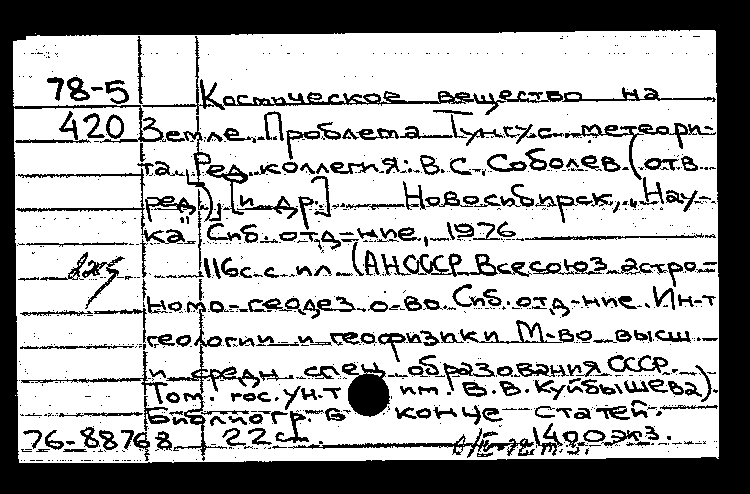 78-5 Космическое вещество на
420 Земле. Проблема Тунгус. метеори-
та. [Ред. коллегия: В.С. Соболев (отв.
ред.), [и др.] Новосибирск, „Нау-
ка" Сиб. отд-ние, 1976
116с. с ил. (АН СССР Всесоюз. астро-
номо-геодез. о-во. Сиб. отд-ние. Ин-т
геологии и геофизики М-во высш.
и средн. спец. образования СССР.
Том. гос. ун-т им. В.В. Куйбышева).
Библиогр. в конце статей.
76-88768 22 см. 1400 экз.